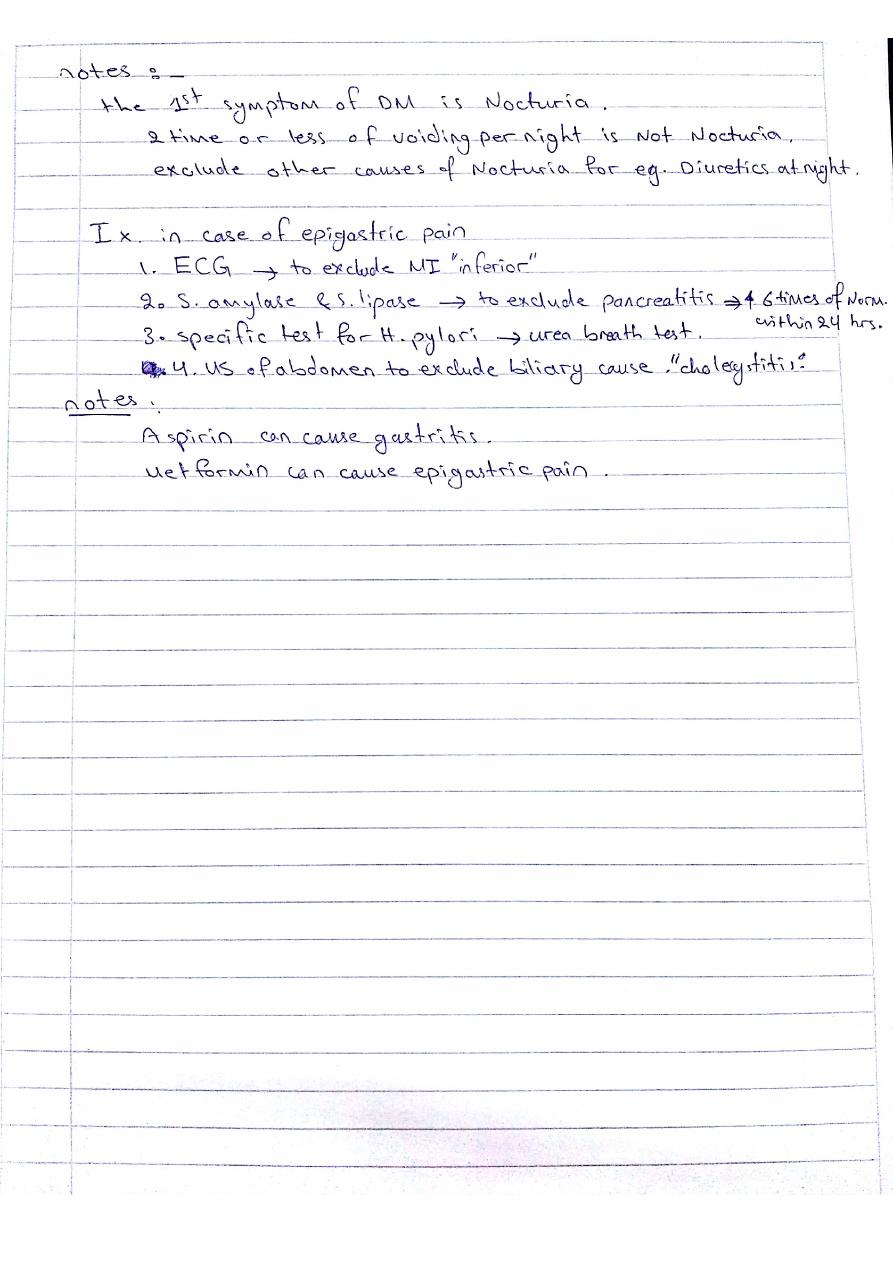 notes :-
the 1st symptom of DM is Nocturia.
2 time or less of voiding per night is Not Nocturia.
exclude other causes of Nocturia for eg. Diuretics at night.
Ix. in case of epigastric pain
1. ECG → to exclude MI "inferior"
2. S. amylase & S. lipase → to exclude pancreatitis ⇒ ↑ 6 times of Norm.
within 24 hrs.
3. specific test for H. pylori → urea breath test.
4. US of abdomen to exclude biliary cause. "cholecystitis".
notes :
Aspirin can cause gastritis.
Metformin can cause epigastric pain.